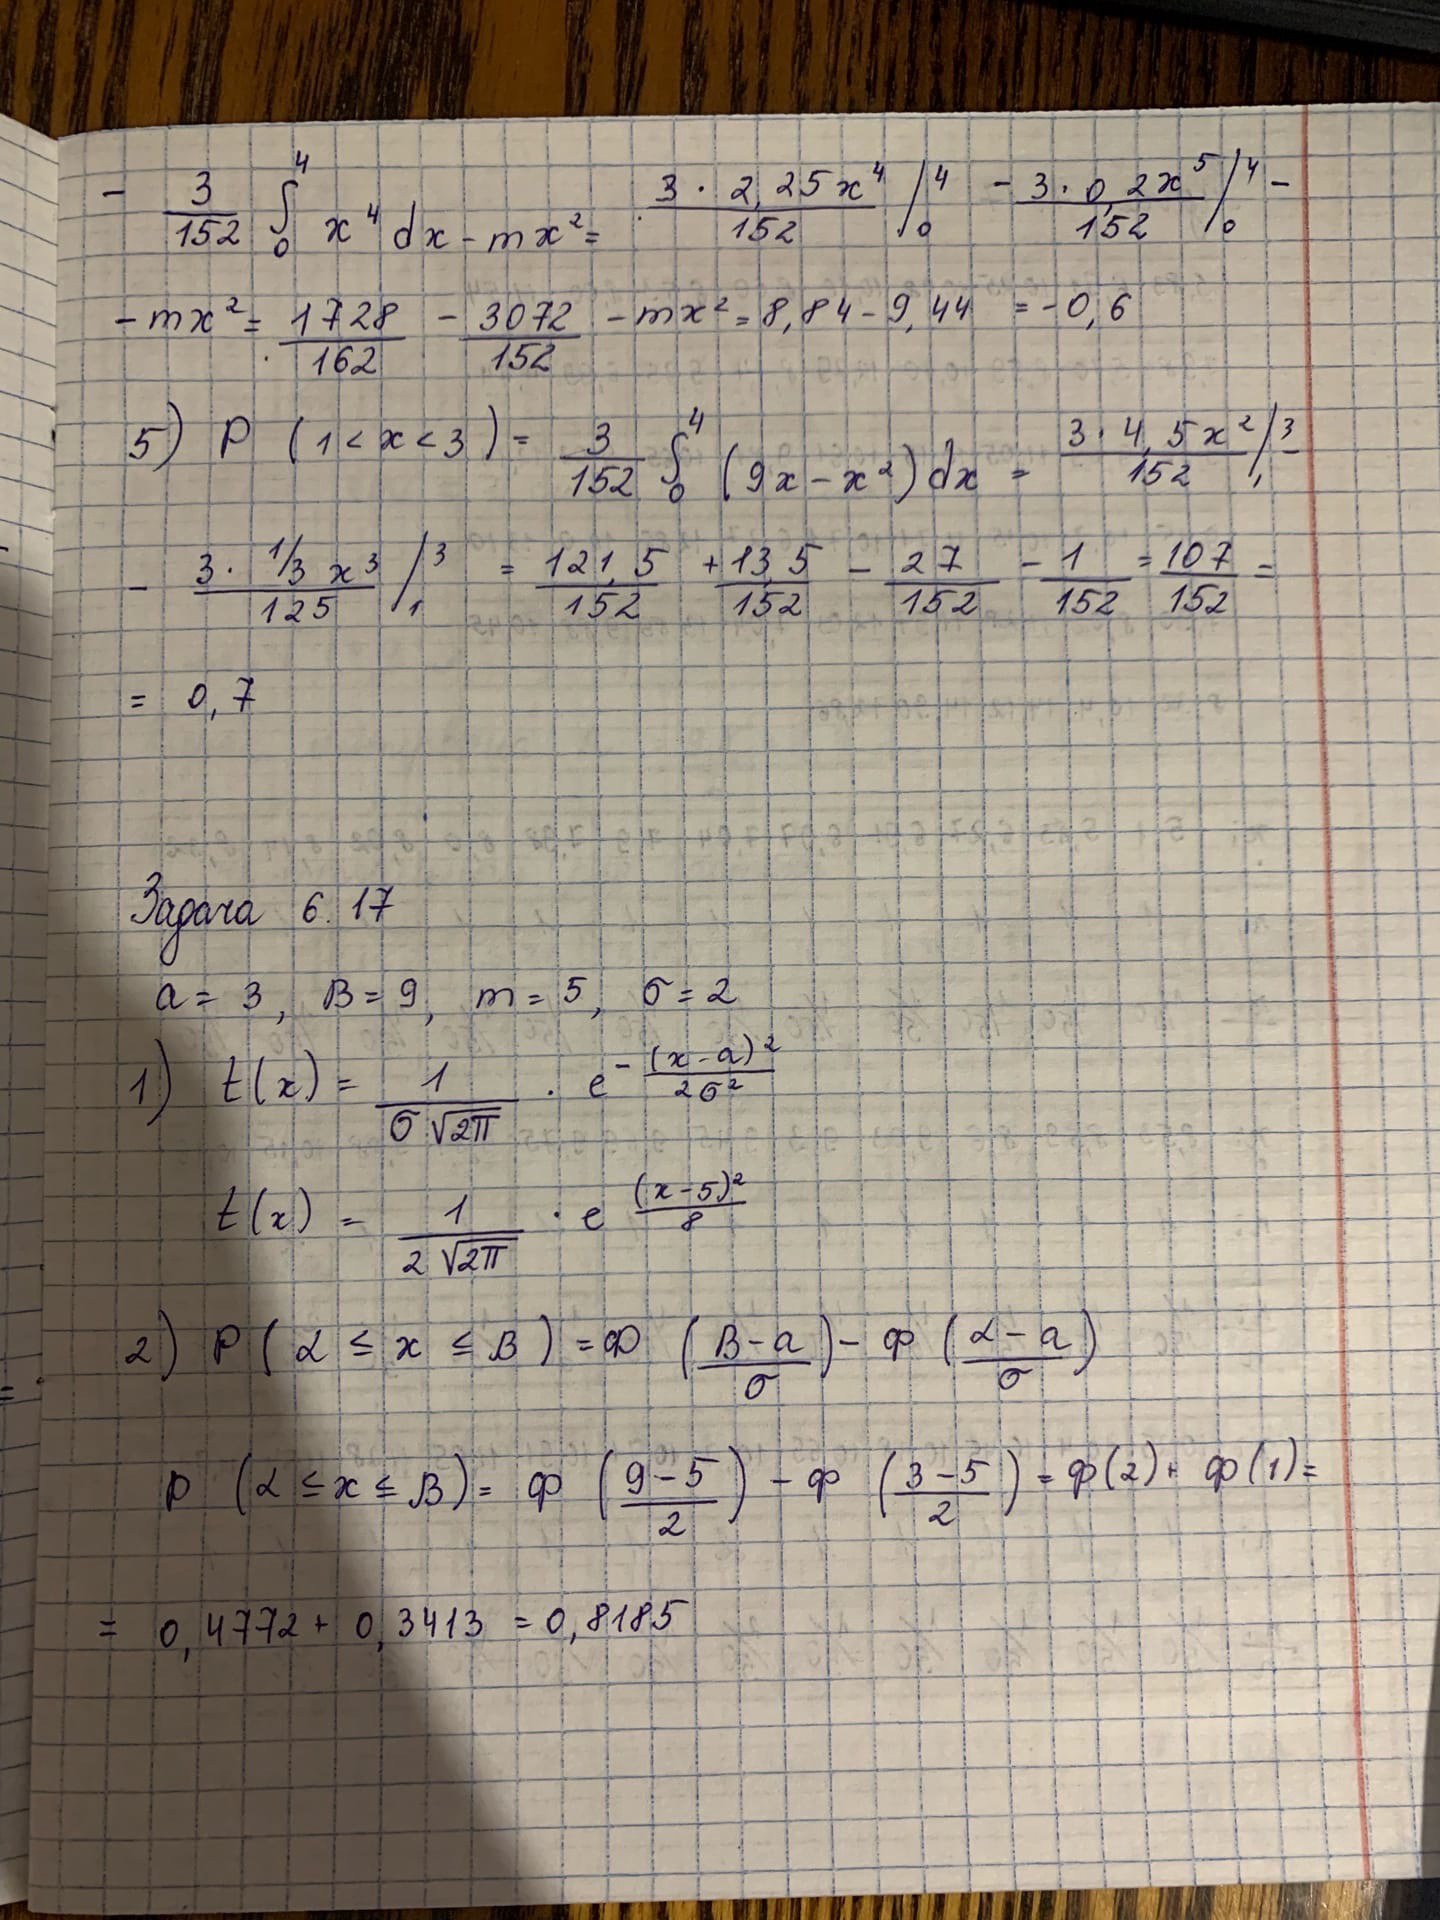 - 3/152 ∫₀⁴ x⁴ dx - mx² = 3 · 2,25x⁴/152 |₀⁴ - 3 · 0,2x⁵/152 |₀⁴ -
- mx² = 1728/162 - 3072/152 - mx² = 8,84 - 9,44 = -0,6
5) P (1 < x < 3) = 3/152 ∫₀⁴ (9x - x²) dx = 3 · 4,5x²/152 |₁³ -
- 3 · 1/3 x³/125 |₁³ = 121,5/152 + 13,5/152 - 27/152 - 1/152 = 107/152 =
= 0,7
Задача 6.17
a = 3, B = 9, m = 5, σ = 2
1) t(x) = 1/(σ√2π) · e^(-(x-a)²/2σ²)
t(x) = 1/(2√2π) · e^((x-5)²/8)
2) P(α ≤ x ≤ B) = Ф((B-a)/σ) - Ф((α-a)/σ)
P (α ≤ x ≤ B) = Ф((9-5)/2) - Ф((3-5)/2) = Ф(2) + Ф(1) =
= 0,4772 + 0,3413 = 0,8185